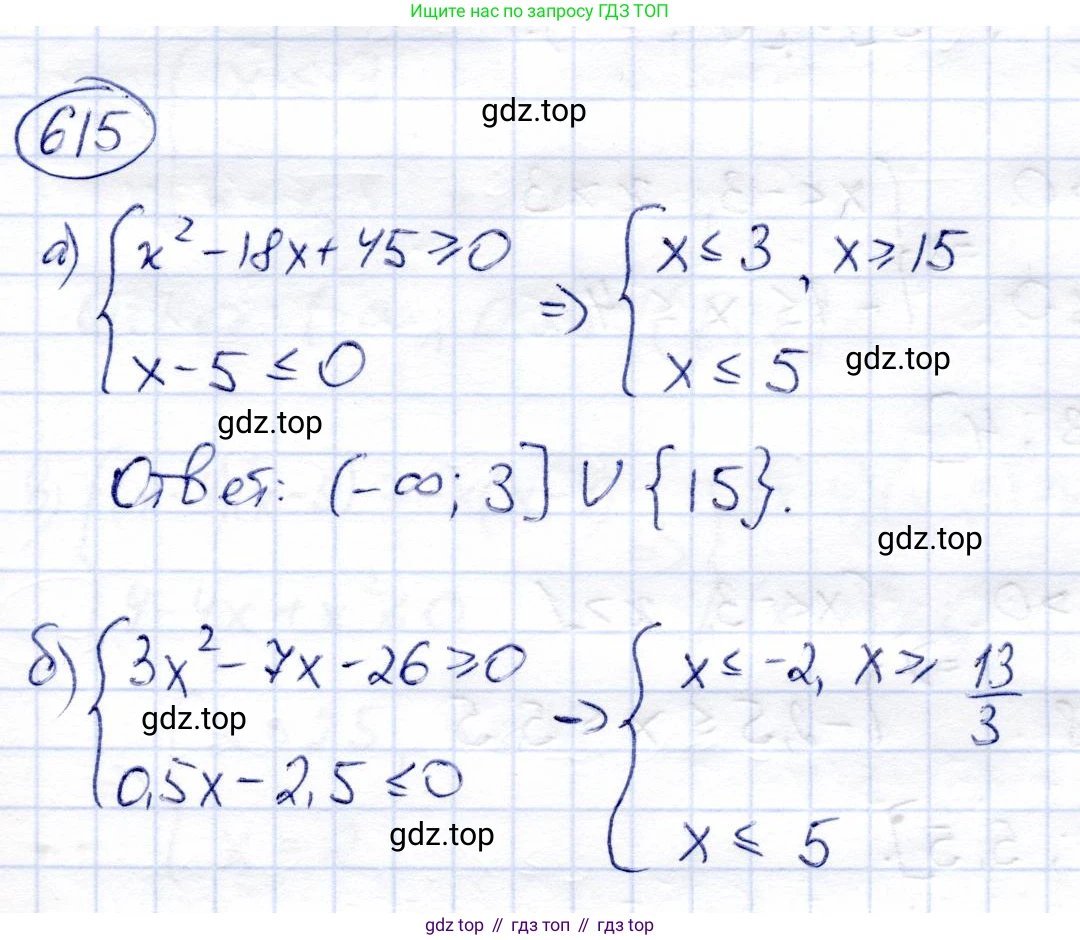 Ищите нас по запросу ГДЗ ТОП
615
gdz.top
а) { x² - 18x + 45 ≥ 0 => { x ≤ 3, x ≥ 15
x - 5 ≤ 0 x ≤ 5
gdz.top
gdz.top
Ответ: (-∞; 3] ∪ {15}.
gdz.top
б) { 3x² - 7x - 26 ≥ 0 -> { x ≤ -2, x ≥ 13/3
gdz.top
0,5x - 2,5 ≤ 0 x ≤ 5
gdz.top
gdz top // гдз топ // gdz top